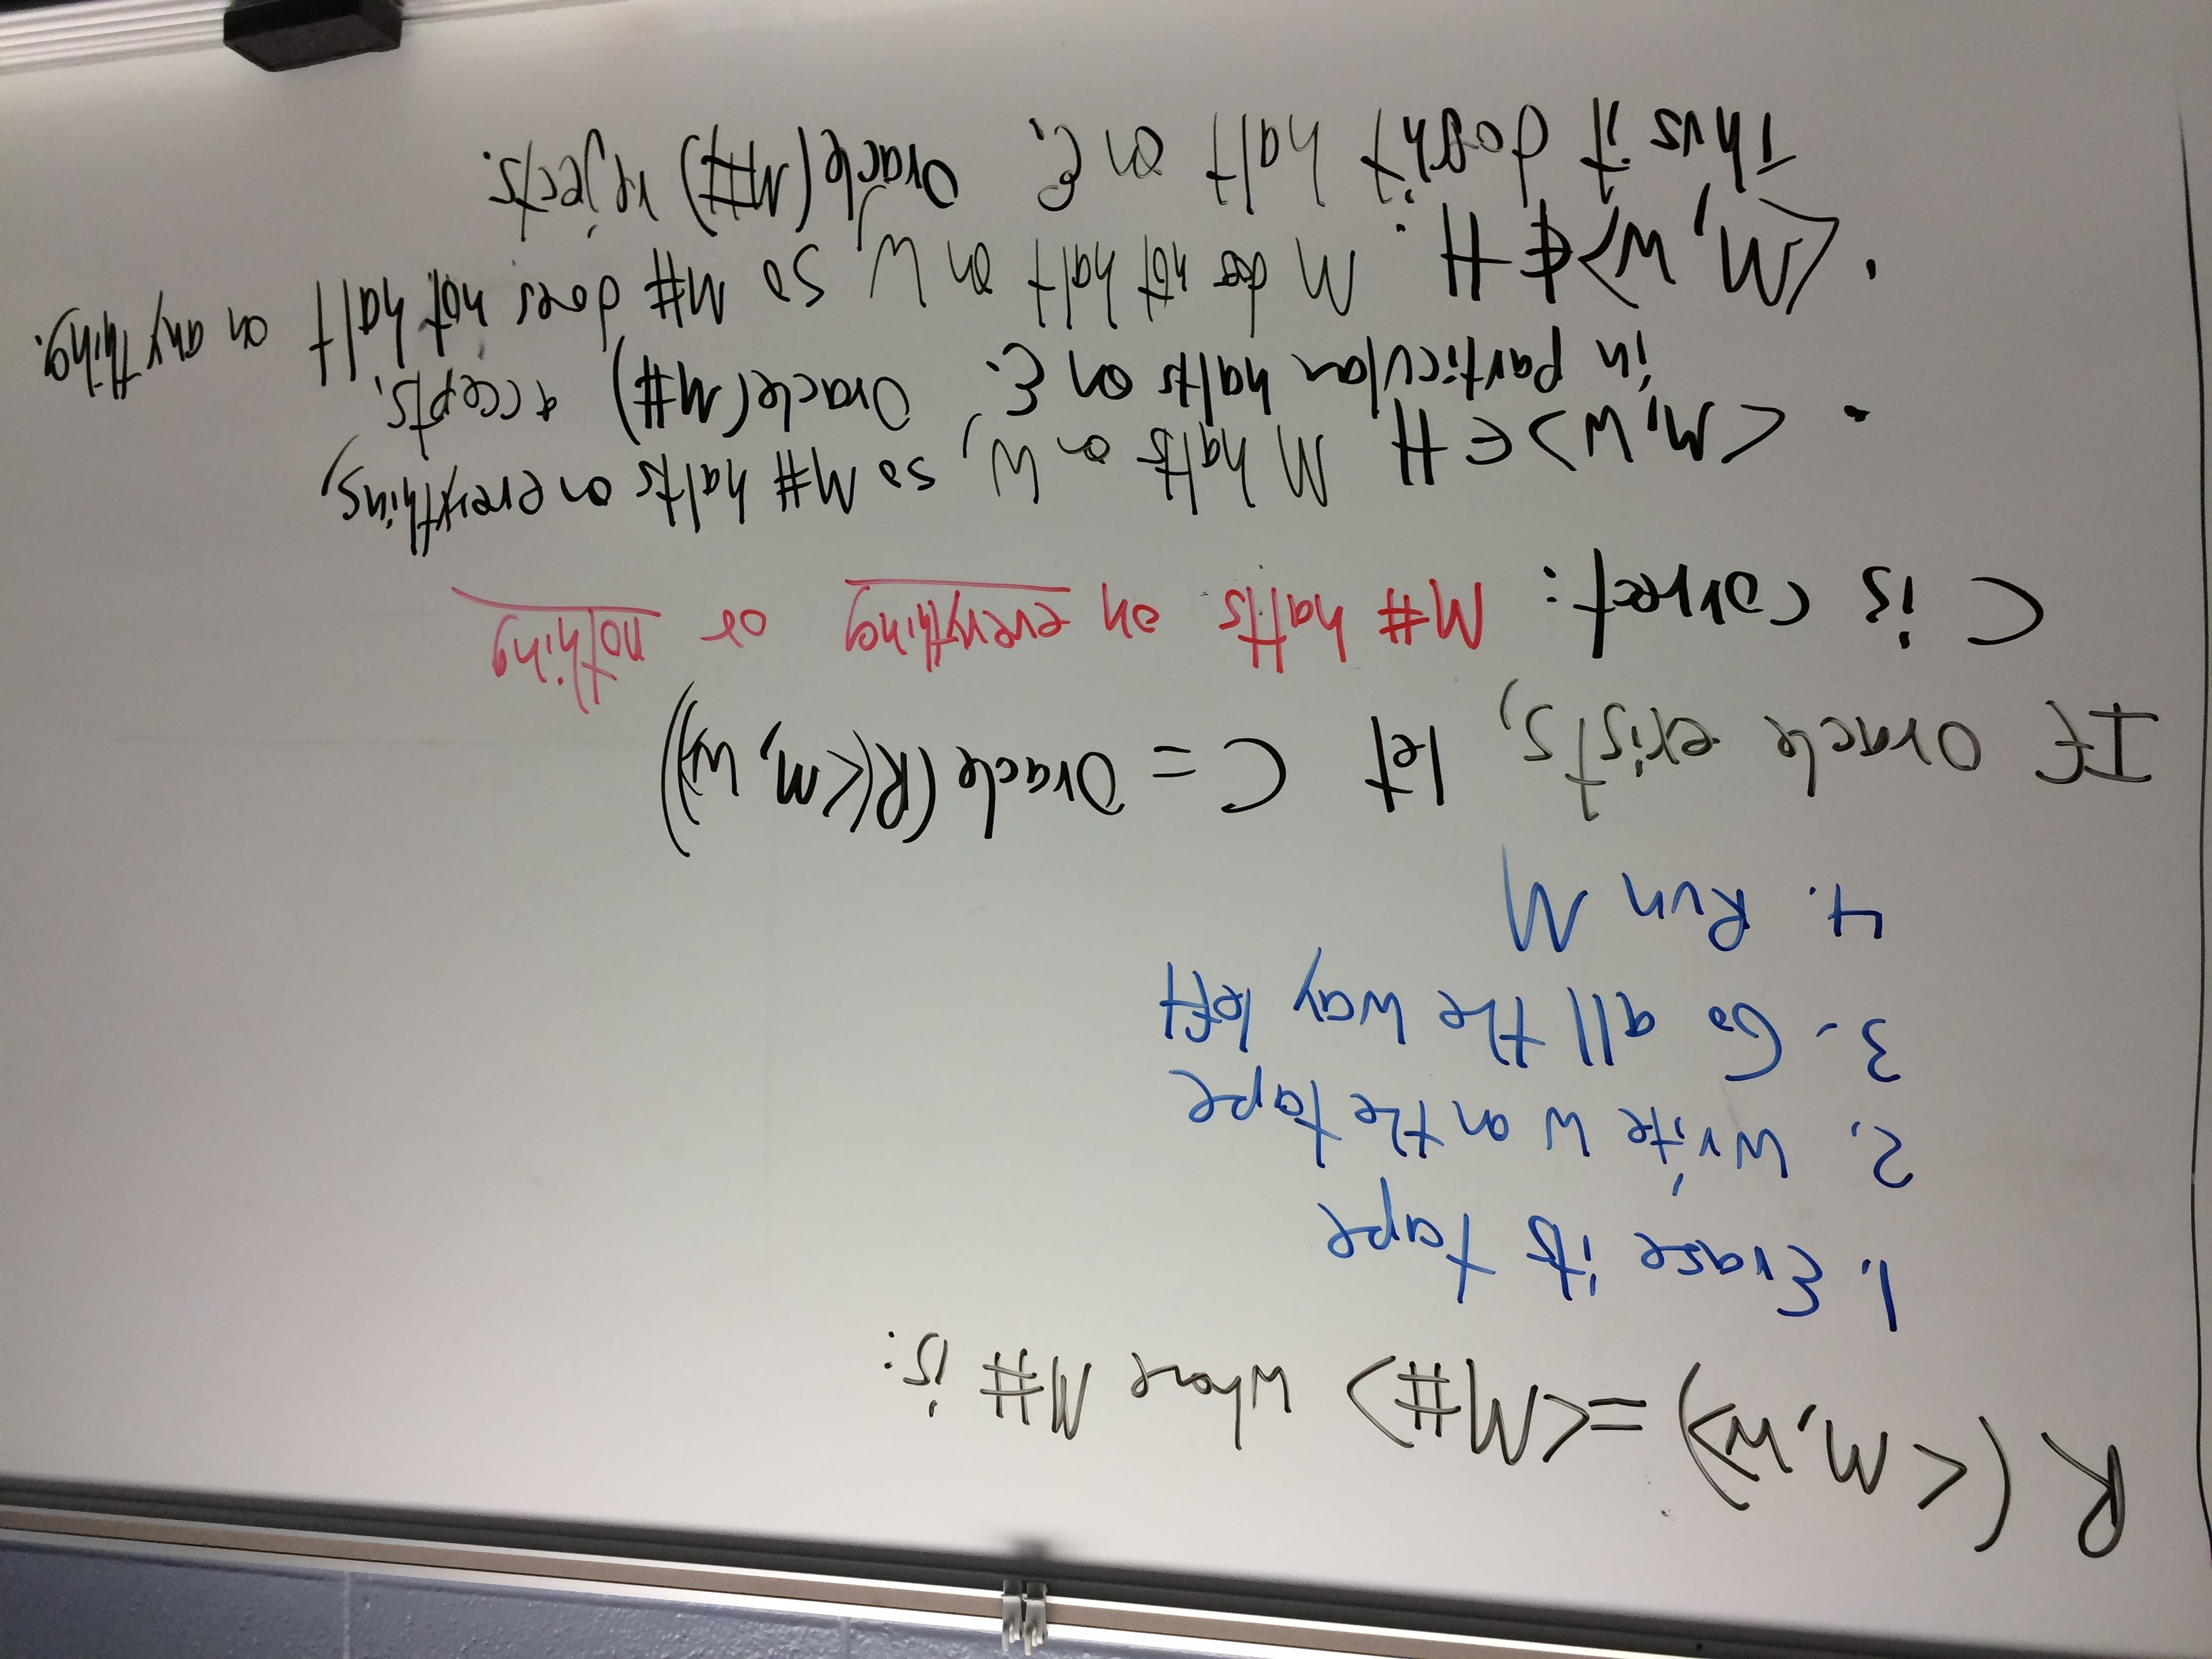 R(<M,W>) = <M#> where M# is:
1. Erase its tape
2. write w on the tape
3. Go all the way left
4. Run M
If Oracle exists, let C = Oracle (R(<M, W>))
C is correct: M# halts on everything or nothing
• <M,W> ∈ H M halts on W, so M# halts on everything,
in particular halts on ε. Oracle(M#) accepts.
• <M,W> ∉ H: M does not halt on W, so M# does not halt on anything.
Thus it doesn't halt on ε. Oracle(M#) rejects.